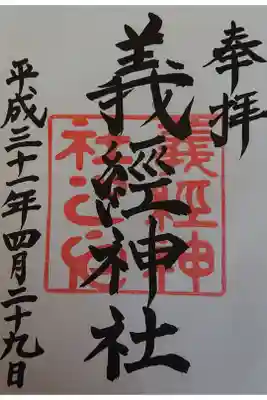 奉拝
義經神社
義經神
社之印
平成三十一年四月二十九日